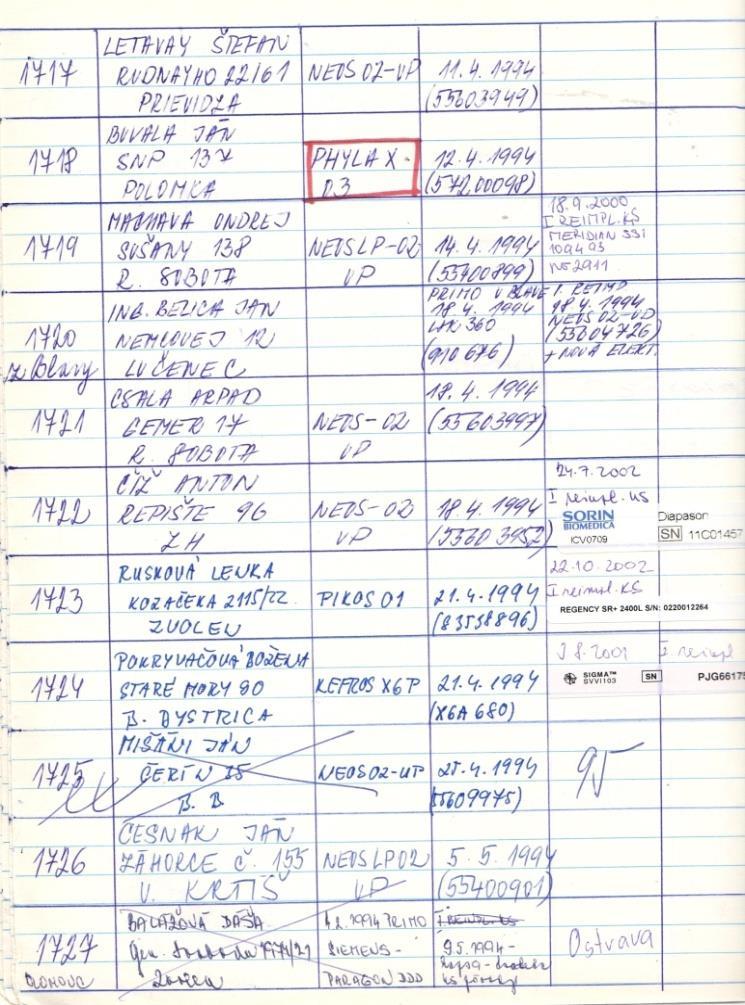 1717
LETAVAY ŠTEFAN
RUDNAYHO 22/61
PRIEVIDZA
NEOS 02-UP
11.4.1994
(55603949)
1718
BUVALA JÁN
SNP 137
POLOMKA
PHYLAX-
03
12.4.1994
(57200098)
1719
MACHAVA ONDREJ
SUŠANY 138
R. SOBOTA
NEOS LP-02
UP
14.4.1994
(55400899)
18.9.2000
I REIMPL. KS
MERIDIAN SSI
109493
N52911
1720
z Blavy
ING. BELICA JÁN
NEMCOVEJ 12
LUČENEC
PRIMO V BLAVE
18.4.1994
360
(910676)
I. REIMP
18.4.1994
NEOS 02-UP
(55604726)
+ NOVÁ ELEKT.
1721
CSALA ARPAD
GEMER 17
R. SOBOTA
NEOS-02
UP
18.4.1994
(55603997)
1722
ČÍŽ ANTON
REPIŠTE 96
ZH
NEOS-02
UP
18.4.1994
(55603952)
24.7.2002
I reimpl. KS
SORIN
BIOMEDICA
ICV0709
Diapason
SN 11C01457
1723
RUSKOVÁ LENKA
KOZAČEKA 2115/22
ZVOLEN
PIKOS 01
21.4.1994
(83538896)
22.10.2002
I reimpl. KS
REGENCY SR+ 2400L S/N: 0220012264
1724
POKRYVAČOVÁ BOŽENA
STARÉ HORY 90
B. BYSTRICA
KEFROS X6P
21.4.1994
(X6A 680)
8.2001
I. reimpl
SIGMA™
SVVI103
SN
PJG66175
1725
MIŠÁNI JÁN
ČERÍN 15
B. B
NEOS02-UP
25.4.1994
(55609975)
95
1726
ČESNAK JÁN
ZÁHORCE Č. 155
V. KRTÍŠ
NEOS LP02
UP
5.5.1994
(55400901)
1727
OLOMOUC
BALÁŽOVÁ DAŠA
Gen. Svobodu 1974/21
.2.1994 PRIMO
SIEMENS-
PARAGON DDD
I. REIMPL. KS
9.5.1994-
Ostrava